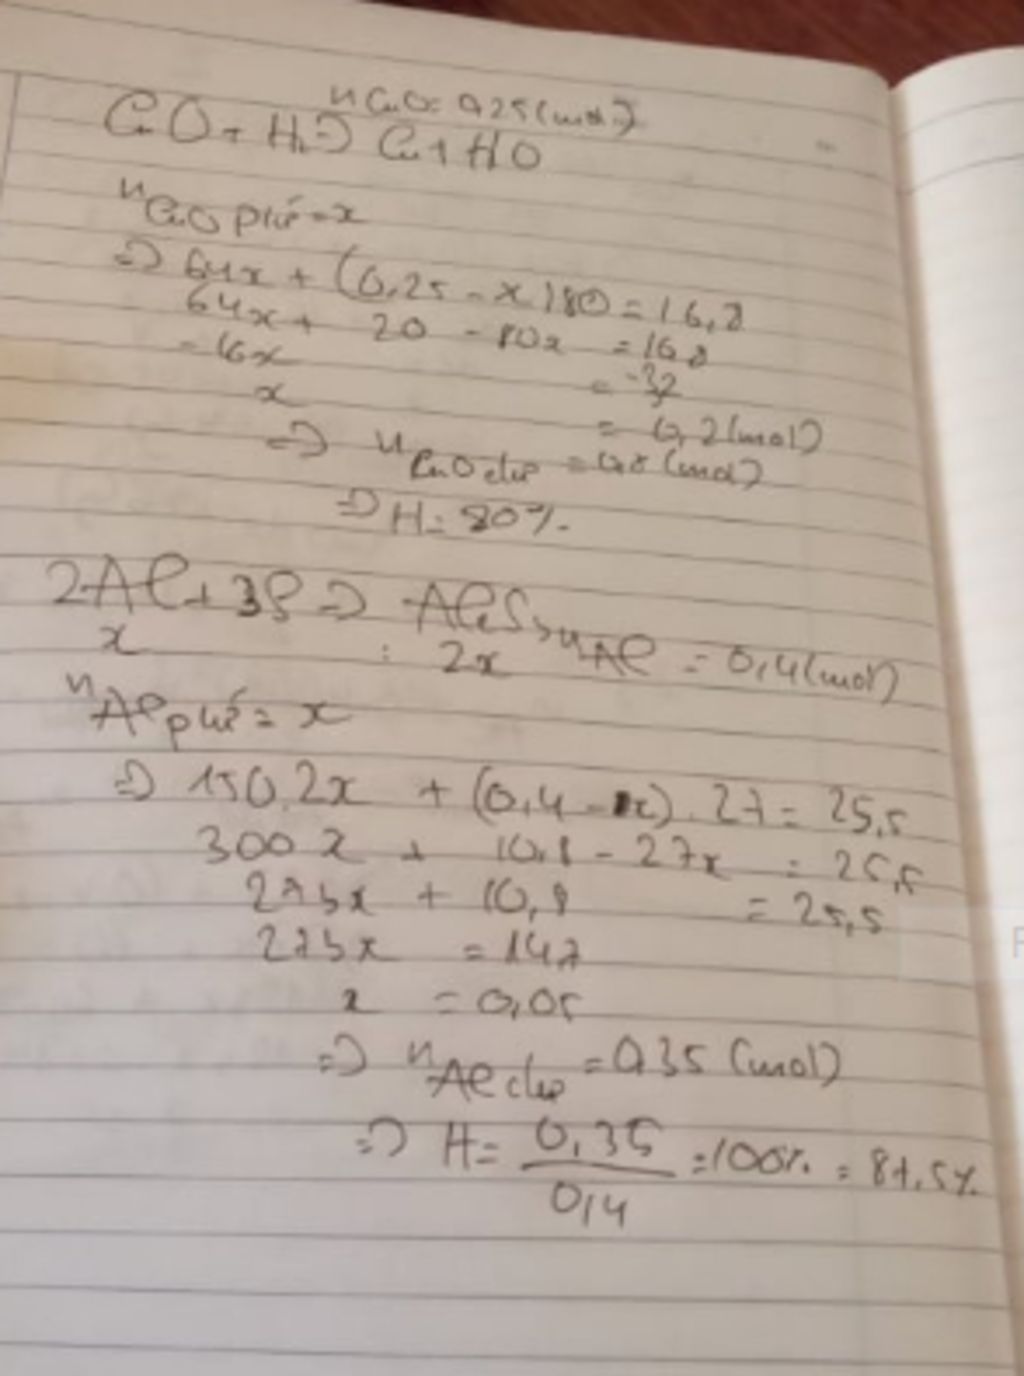 nCuO = 0,25 (mol)
CuO + H₂ => Cu + HO
nCuO pứ = x
=> 64x + (0,25 - x) 80 = 16,8
64x + 20 - 80x = 16,8
- 16x = -3,2
x = 0,2 (mol)
=> nCuO = (mol)
=> H = 80%
2Al + 3S => Al₂S₃ nAl = 0,4 (mol)
x : 2x
nAl pứ = x
=> 150.2x + (0,4 - x) . 27 = 25,5
300x + 10,8 - 27x = 25,5
273x + 10,8 = 25,5
273x = 14,7
x = 0,05
=> nAl = 0,35 (mol)
=> H = 0,35 / 0,4 = 100% = 87,5%